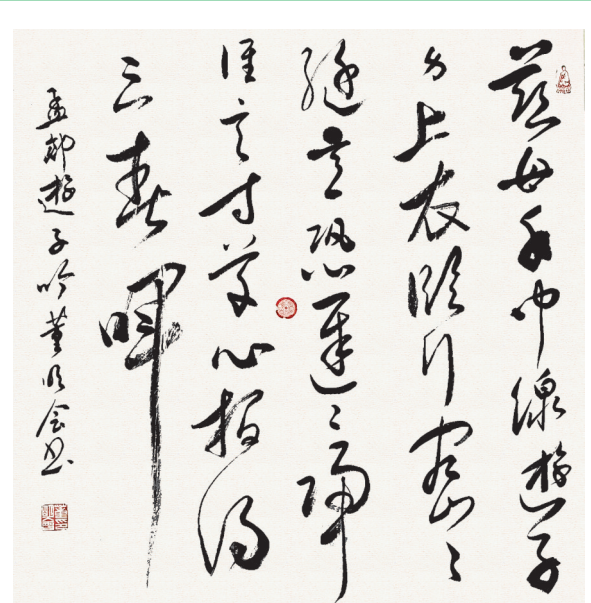 慈母手中線遊子
身上衣臨行密〻
縫意恐遲〻歸
誰言寸草心報得
三春暉
孟郊遊子吟董会书